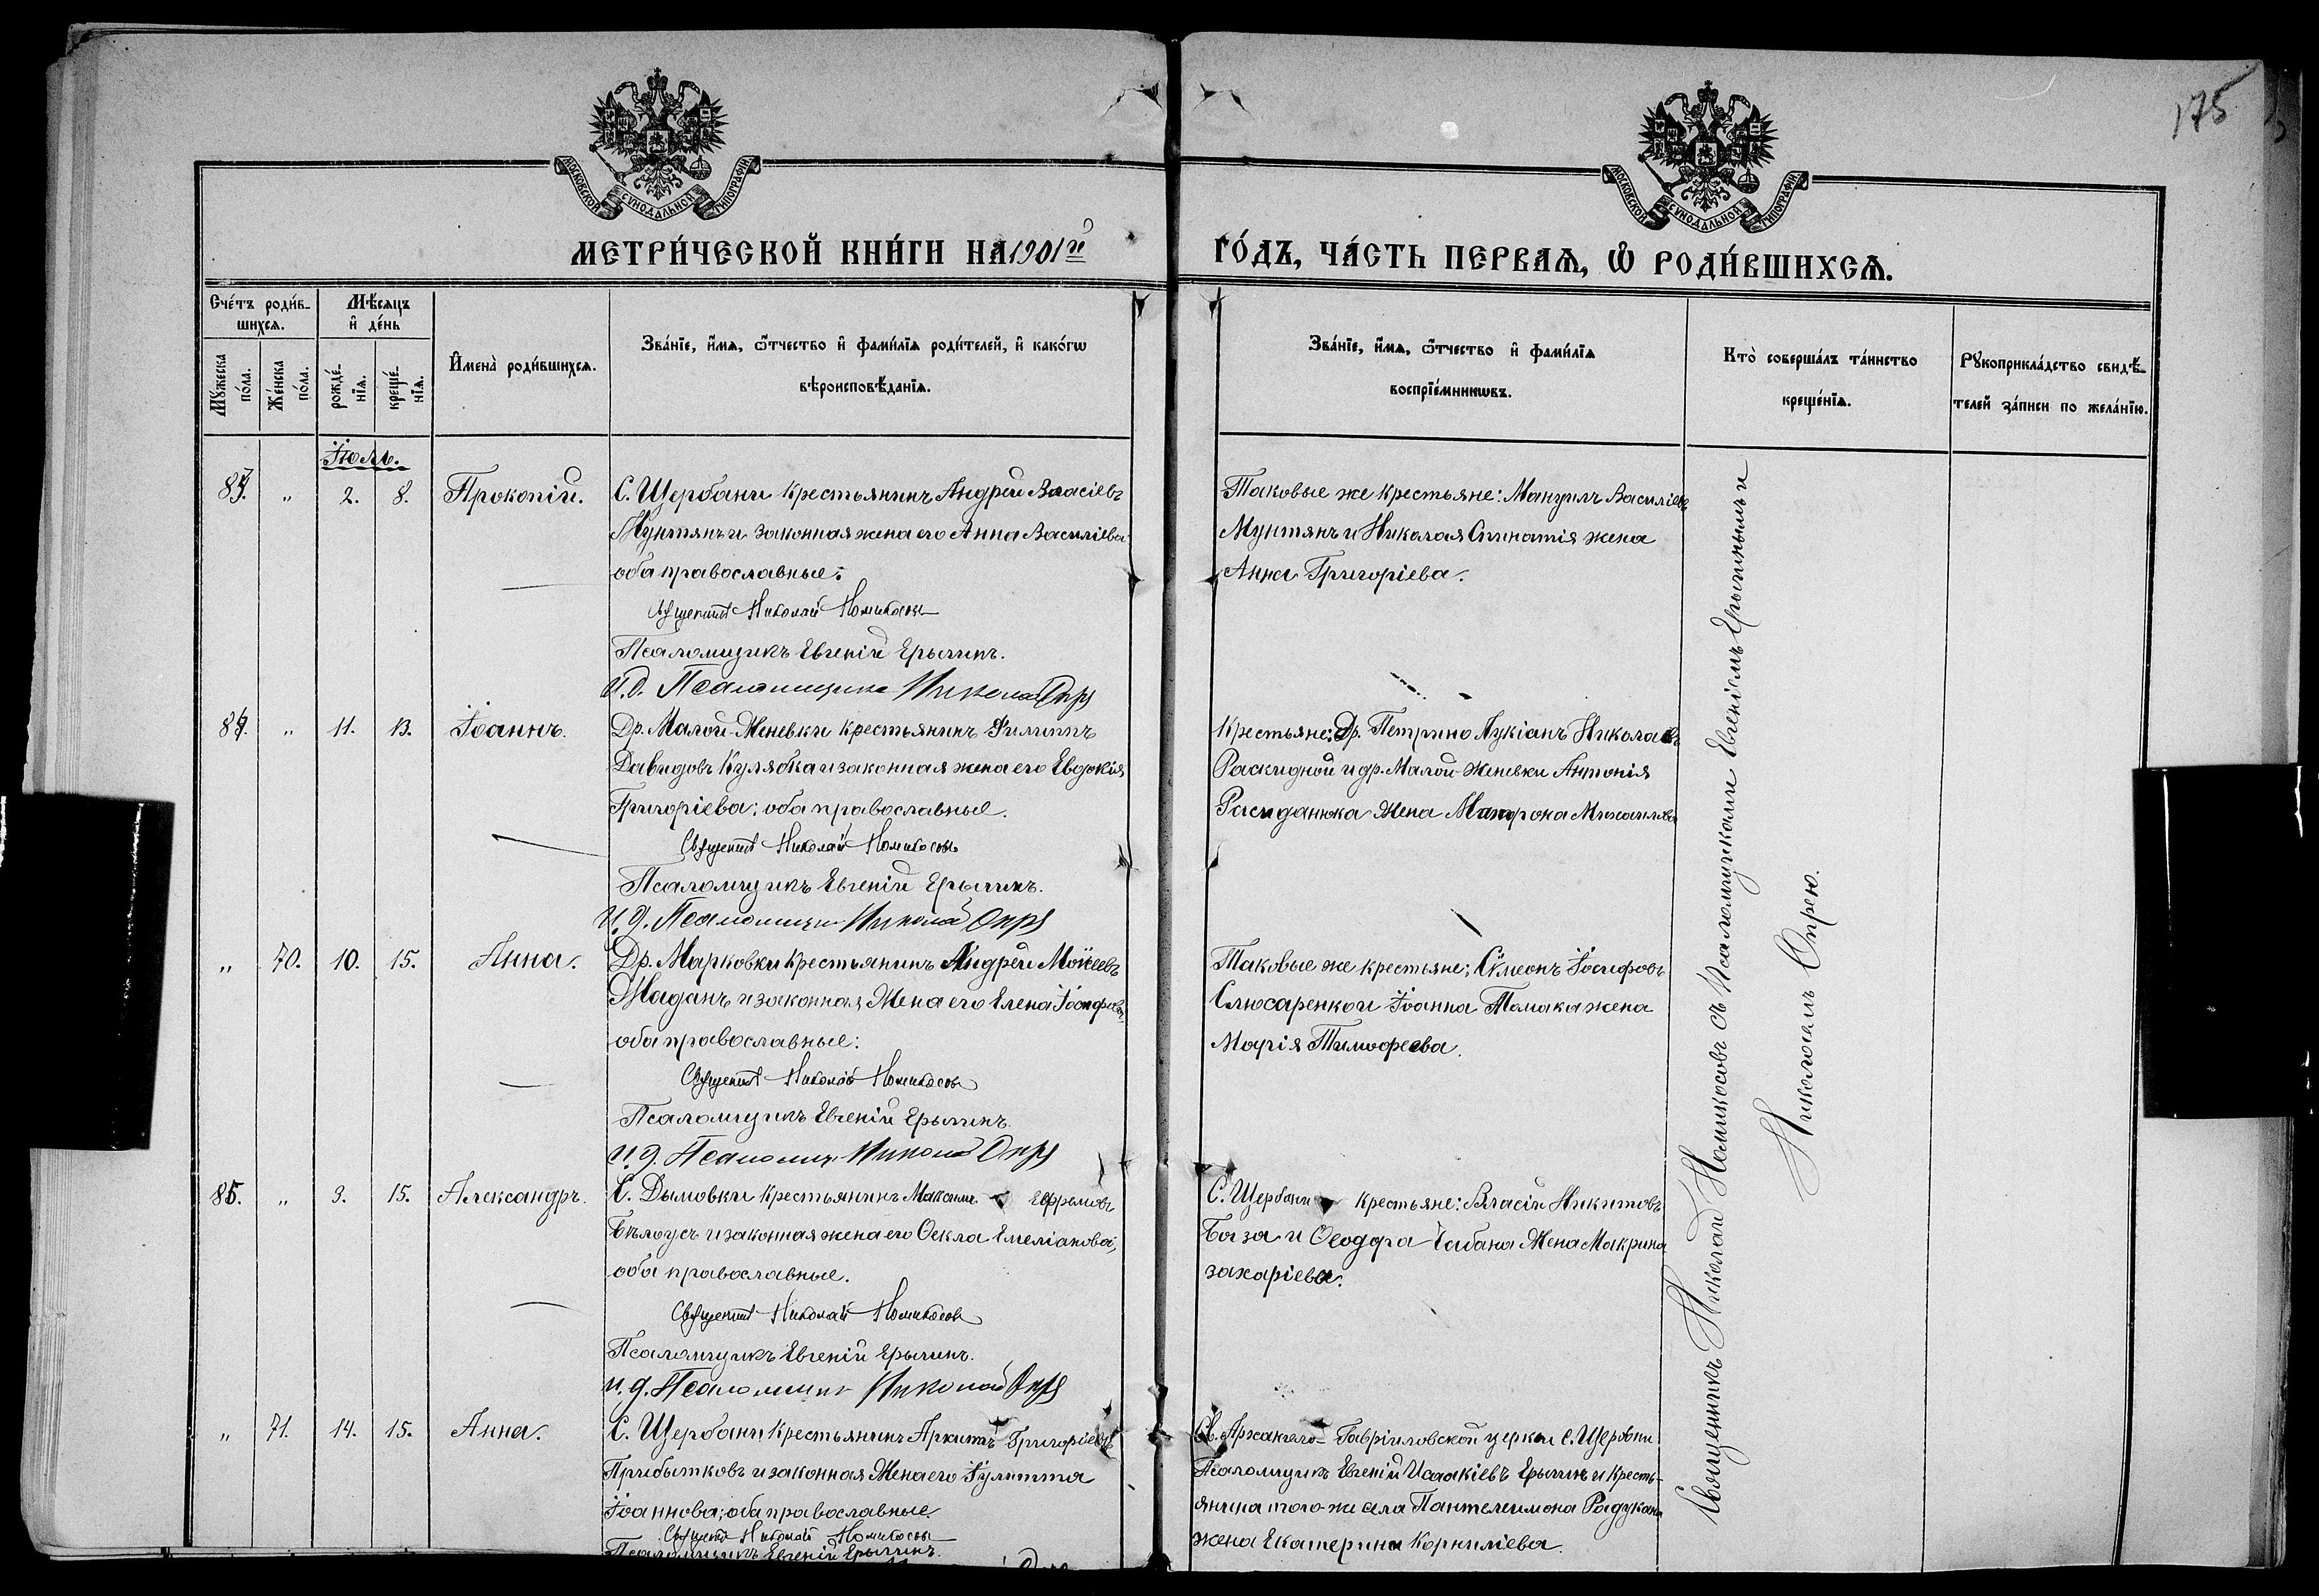 175
МОСКОВСКОЙ СУНОДАЛЬНОЙ ТИПОГРАФІИ
МОСКОВСКОЙ СУНОДАЛЬНОЙ ТИПОГРАФІИ
МЕТРИ́ЧЕСКОЙ КНИ́ГИ НА 1901й ГО́ДЪ, ЧА́СТЬ ПЕРВАѦ, Ѡ РОДИ́ВШИХСѦ.
Сче́тъ роди́в-
шихсѧ.
Мѣ́сѧцъ
и҆ де́нь
Мꙋ́жеска по́ла.
Же́нска по́ла.
рожде́-
нїѧ.
креще́-
нїѧ.
И҆мена̀ роди́вшихсѧ.
Зва́нїе, и҆́мѧ, ѻ҆́тчество и҆ фами́лїѧ роди́телей, и҆ како́гѡ
вѣроисповѣ́данїѧ.
Зва́нїе, и҆́мѧ, ѻ҆́тчество и҆ фами́лїѧ
воспрїе́мникѡвъ.
Кто̀ соверша́лъ та́инство
креще́нїѧ.
Рꙋкоприкла́дство свидѣ́-
телей за́писи по жела́нїю.
Іюль.
„ 2. 8. Прокопій. С. Щербани крестьянинъ Андрей Власіевъ
Мунтянъ и законная жена его Анна Василіева
оба православные:
Священникъ Николай Номикосовъ
Псаломщикъ Евгеній Ерычинъ.
И. д. Псаломщика Николай Опря
Таковые же крестьяне: Мануилъ Василіевъ
Мунтянъ и Николая Спинатія жена
Анна Григоріева.
„ 11. 13. Іоаннъ. Др. Малой-Женевки крестьянинъ Филиппъ
Давидовъ Кулябка и законная жена его Евдокія
Григоріева; оба православные.
Священникъ Николай Номикосовъ
Псаломщикъ Евгеній Ерычинъ.
И. д. Псаломщи Николай Опря
Крестьяне: Др. Петрино Лукіанъ Николаевъ
Раскидной и др. Малой-Женевки Антонія
жена Матрона Михаилова
„ 70. 10. 15. Анна. Др. Марковки крестьянинъ Андрей Моѵсеевъ
Маданъ и законная жена его Елена Іосифова,
оба православные:
Священникъ Николай Номикосовъ
Псаломщикъ Евгеній Ерычинъ.
И. д. Псаломщ Николай Опря
Таковые же крестьяне; Сѵмеонъ Іосифовъ
Слюсаренко и Іоанна Томака жена
Марія Тимофеева.
85. „ 3. 15. Александръ. С. Дымовки крестьянинъ Максимъ Ефремовъ
Бѣлоусъ и законная жена его Ѳекла Емеліанова,
оба православные.
Священникъ Николай Номикосовъ
Псаломщикъ Евгеній Ерычинъ.
И. д. Псаломщик Николай Опря
С. Щербани крестьяне: Власій Никитовъ
База и Ѳеодора Чабана жена Макрина
Захаріева.
„ 71. 14. 15. Анна. С. Щербани крестьянинъ Григоріевъ
Прибытковъ и законная жена его Іулитта
Іоаннова; оба православные.
Священникъ Николай Номикосовъ
Псаломщикъ Евгеній Ерычинъ.
Св. Архангело-Гавріиловской церкви с. Щербани
Псаломщикъ Евгеній Исаакіевъ Ерычинъ и кресть-
янина того-же села Пантелеимона Радукана
жена Екатерина Корниліева.
Священникъ Николай Номикосовъ съ Псаломщикомъ Евгеніемъ Ерычинымъ и
Николаемъ Опрею.